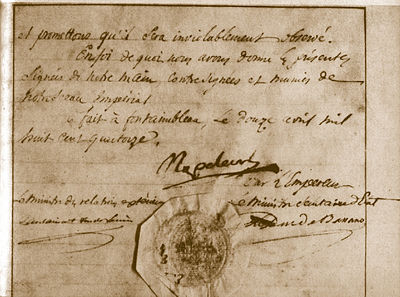 et promettons qu'il sera inviolablement observé.
En foi de quoi nous avons donné les présentes
signées de notre main contresignées et munies de
notre sceau Impérial
fait à fontainebleau, le douze avril mil
huit cent quatorze.
Napoleon
Par l'Empereur
Le Ministre des relations extérieures
Le Ministre Secrétaire d'Etat
Duc de Bassano